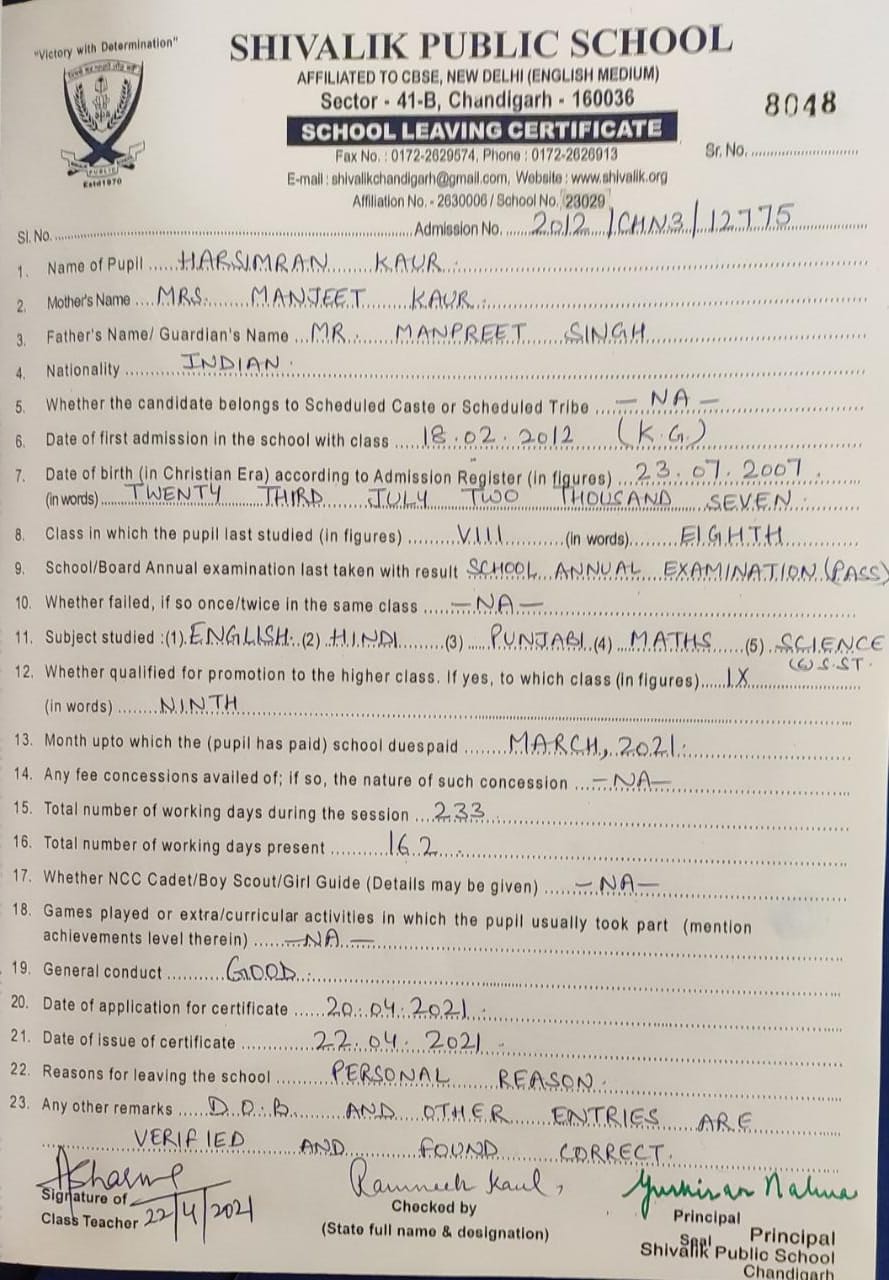 "Victory with Determination"
SHIVALIK PUBLIC SCHOOL
AFFILIATED TO CBSE, NEW DELHI (ENGLISH MEDIUM)
Sector - 41-B, Chandigarh - 160036
8048
SCHOOL LEAVING CERTIFICATE
Fax No. : 0172-2629574, Phone : 0172-2626913
Sr. No. ..............................
E-mail : shivalikchandigarh@gmail.com, Website : www.shivalik.org
Estd 1970
Affiliation No. - 2630006 / School No. 23029
Sl. No. .............................. Admission No. ...... 2012 / CHN3 / 12775
1. Name of Pupil ...... HARSIMRAN KAUR.
2. Mother's Name .... MRS. MANJEET KAUR.
3. Father's Name/ Guardian's Name ... MR. MANPREET SINGH
4. Nationality ............ INDIAN.
5. Whether the candidate belongs to Scheduled Caste or Scheduled Tribe .... — NA —
6. Date of first admission in the school with class ..... 18.02.2012 (K.G.)
7. Date of birth (in Christian Era) according to Admission Register (in figures) ... 23.07.2007.
(in words) ..... TWENTY THIRD JULY TWO THOUSAND SEVEN.
8. Class in which the pupil last studied (in figures) .......... VIII ............ (in words) ......... EIGHTH
9. School/Board Annual examination last taken with result SCHOOL ANNUAL EXAMINATION (PASS)
10. Whether failed, if so once/twice in the same class ..... —NA—
11. Subject studied :(1). ENGLISH. (2) .HINDI ........ (3) ..... PUNJABI. (4) .... MATHS ..... (5) . SCIENCE
(6) S.ST.
12. Whether qualified for promotion to the higher class. If yes, to which class (in figures) ..... IX
(in words) ........ NINTH
13. Month upto which the (pupil has paid) school duespaid ........ MARCH, 2021.
14. Any fee concessions availed of; if so, the nature of such concession .... —NA—
15. Total number of working days during the session .... 233
16. Total number of working days present ........... 162
17. Whether NCC Cadet/Boy Scout/Girl Guide (Details may be given) ...... —NA—
18. Games played or extra/curricular activities in which the pupil usually took part (mention
achievements level therein) ...... —NA—
19. General conduct ........... GOOD.
20. Date of application for certificate ...... 20.04.2021.
21. Date of issue of certificate .............. 22.04.2021
22. Reasons for leaving the school .......... PERSONAL REASON.
23. Any other remarks ...... D.O.B AND OTHER ENTRIES ARE
VERIFIED AND FOUND CORRECT.
ASharma
Signature of
Class Teacher 22/4/2021
Checked by
(State full name & designation)
Principal
Seal
Principal
Shivalik Public School
Chandigarh